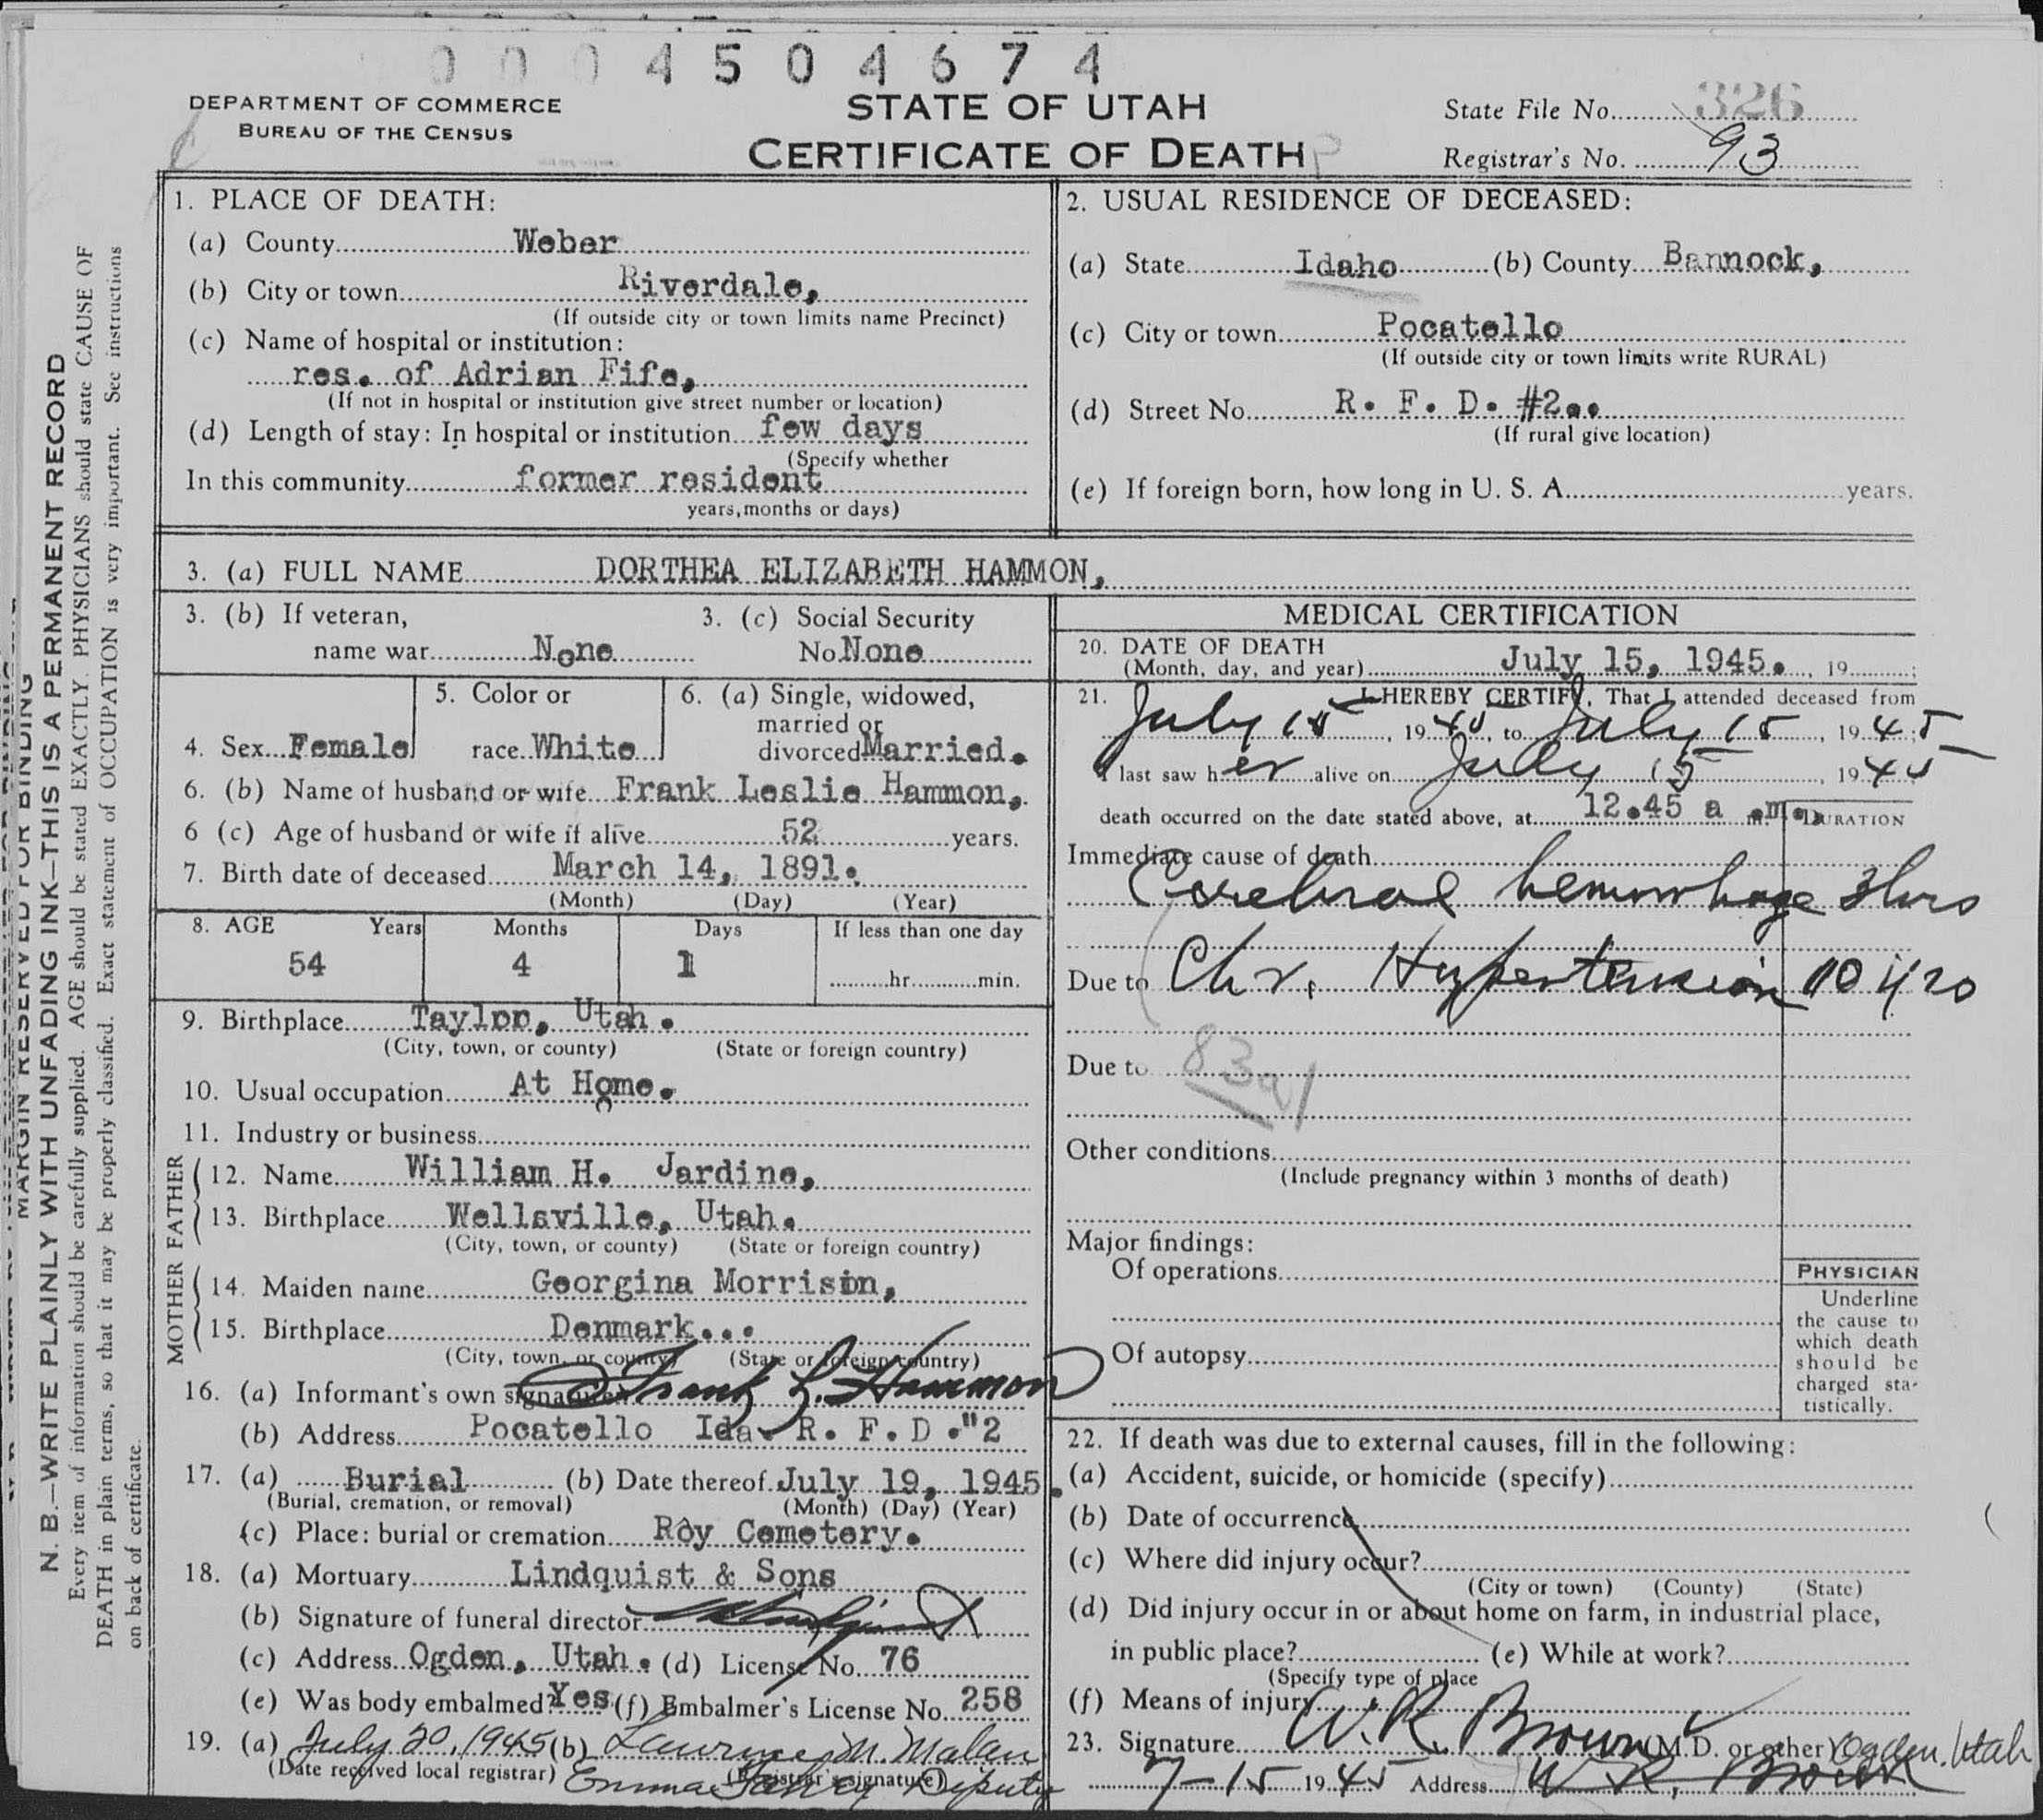 0004504674
DEPARTMENT OF COMMERCE
BUREAU OF THE CENSUS
STATE OF UTAH
CERTIFICATE OF DEATH
State File No. 326
Registrar's No. 93
MARGIN RESERVED FOR BINDING
N. B.—WRITE PLAINLY WITH UNFADING INK—THIS IS A PERMANENT RECORD
Every item of information should be carefully supplied. AGE should be stated EXACTLY. PHYSICIANS should state CAUSE OF
DEATH in plain terms, so that it may be properly classified. Exact statement of OCCUPATION is very important. See instructions
on back of certificate.
1. PLACE OF DEATH:
(a) County Weber
(b) City or town Riverdale,
(If outside city or town limits name Precinct)
(c) Name of hospital or institution:
res. of Adrian Fife,
(If not in hospital or institution give street number or location)
(d) Length of stay: In hospital or institution few days
(Specify whether
In this community former resident
years, months or days)
2. USUAL RESIDENCE OF DECEASED:
(a) State Idaho (b) County Bannock,
(c) City or town Pocatello
(If outside city or town limits write RURAL)
(d) Street No. R. F. D. #2..
(If rural give location)
(e) If foreign born, how long in U. S. A. years.
3. (a) FULL NAME DORTHEA ELIZABETH HAMMON,
3. (b) If veteran,
name war None
3. (c) Social Security
No. None
4. Sex Female
5. Color or
race White
6. (a) Single, widowed,
married or
divorced Married.
6. (b) Name of husband or wife Frank Leslie Hammon,
6 (c) Age of husband or wife if alive 52 years.
7. Birth date of deceased March 14, 1891.
(Month) (Day) (Year)
8. AGE Years Months Days If less than one day
54 4 1 hr. min.
9. Birthplace Taylor, Utah.
(City, town, or county) (State or foreign country)
10. Usual occupation At Home.
11. Industry or business
FATHER
12. Name William H. Jardine,
13. Birthplace Wellsville, Utah.
(City, town, or county) (State or foreign country)
MOTHER
14. Maiden name Georgina Morrison,
15. Birthplace Denmark...
(City, town, or county) (State or foreign country)
16. (a) Informant's own signature Frank L. Hammon
(b) Address Pocatello Ida R. F. D ."2
17. (a) Burial (b) Date thereof July 19, 1945.
(Burial, cremation, or removal) (Month) (Day) (Year)
(c) Place: burial or cremation Roy Cemetery.
18. (a) Mortuary Lindquist & Sons
(b) Signature of funeral director
(c) Address Ogden, Utah. (d) License No. 76
(e) Was body embalmed? Yes (f) Embalmer's License No. 258
19. (a) July 20, 1945 (b) Lawrence M. Malan
(Date received local registrar) (Registrar's signature)
Emma Deputy
MEDICAL CERTIFICATION
20. DATE OF DEATH
(Month, day, and year) July 15, 1945. , 19 ;
21. I HEREBY CERTIFY, That I attended deceased from
July 15, 1945, to July 15, 1945
I last saw her alive on July 15, 1945
death occurred on the date stated above, at 12.45 a .m.
DURATION
Immediate cause of death
Cerebral hemorrhage 3 hrs
Due to Chr. Hypertension 10 yrs
Due to 83a1
Other conditions
(Include pregnancy within 3 months of death)
Major findings:
Of operations
Of autopsy
PHYSICIAN
Underline
the cause to
which death
should be
charged sta-
tistically.
22. If death was due to external causes, fill in the following:
(a) Accident, suicide, or homicide (specify)
(b) Date of occurrence
(c) Where did injury occur?
(City or town) (County) (State)
(d) Did injury occur in or about home on farm, in industrial place,
in public place? (e) While at work?
(Specify type of place
(f) Means of injury
23. Signature W. R. Brown (M.D. or other) Ogden, Utah
7-15 1945 Address W R. Brown